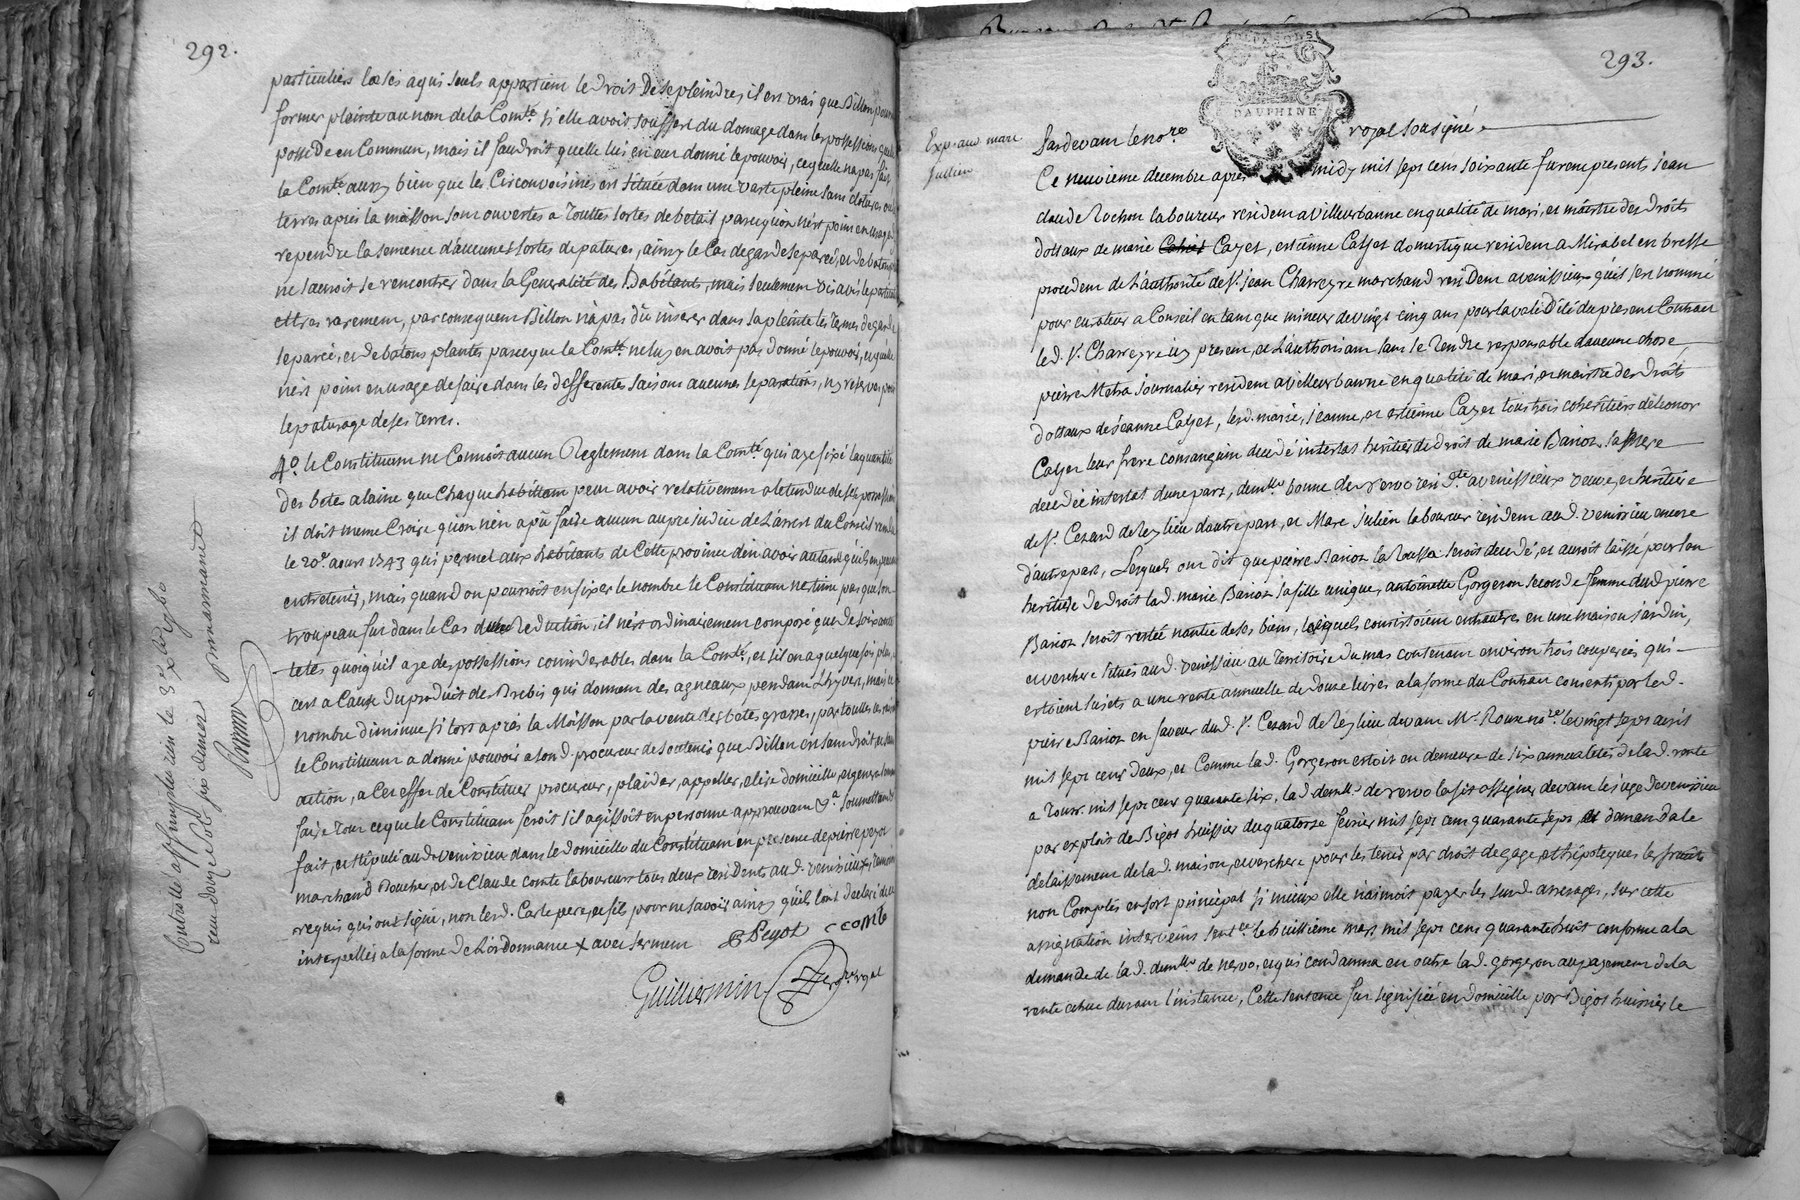 292.
particuliers lesés a qui seuls appartient le droit de se pleindre, il est vrai que Billon pourroit
former plainte au nom de la Comté si elle avoit souffert du domage dans les possessions quelle
possede en Commun, mais il faudroit quelle lui en eut donné le pouvoir, ce quelle na pas fait
la Comté aussy bien que les Circonvoisines est située dans une vaste pleine sans clotures
terres apres la moisson sont ouvertes a touttes sortes de betail parcequion nest point en usage
rependre la semence daucunes sortes de patures, ainsy le Cas de garde separée, et de batons
ne sauroit se rencontrer dans la Generalité des habitants, mais seulement vis avis le particulier
et tres rarement, par consequent Billon na pas dû inserer dans sa pleinte les termes de garde
separée, et de batons plantés parceque la Comté ne luy en avoit pas donné le pouvoir, et quelle
nest point en usage de faire dans les differentes saisons aucunes separations, ny reserves pour
le paturage de ses terres.
4° le Constituant ne Connoit aucun Reglement dans la Comté qui aye fixé la quantité
des bete a laine que Chaque habittant peut avoir relativement a letendue de ses possessions
il doit meme Croire quion nen a pû faire aucun au prejudice de Larrest du Conseil rendu
le 20e aoust 1743 qui permet aux habitants de Cette province den avoir autant quils en peuvent
entretenir, mais quand on pourroit en fixer le nombre le Constituant nestime pas que son
troupeau fut dans le Cas de Reduction, il nest ordinairement composé que de soixante
tetes quoiquil aye des possessions considerables dans la Comté, et sil en a quelquefois plus,
cest a Cause du produit des Brebis qui donnent des agneaux pendant Lhyver, mais ce
nombre diminue si tost après la Moisson par la vente des betes grasses, par touttes ces raisons
le Constituant a donné pouvoir a son d. procureur de soutenir que Billon est sans droit, et sans
action, a Cet effet de Constituer procureur, plaider, appeller, elire domicille, et generalement
faire tout ce que le Constituant feroit sil agissoit en personne approuvant &a soumettant
fait, et stipulé aud. venissieu dans le domicille du Constituant en presence de pierre peyot
marchand Boucher, et de Claude comte laboureur tous deux residents aud. venissieux, temoins
requis qui ont signé, non lesd. Carle pere, et fils pour ne savoir ainsy quils lont declaré de ce
interpellés a la forme de Lordonnance & avec serment P Peyot C comte
Guillermin no.re royal
293.
DAUPHINE
Exp. aud. marc
Jullien
Pardevant le no.re royal soussigné
Ce neuvieme decembre apres midy mil sept cens soixante furent presents jean
claude Rochon laboureur resident a villeurbanne en qualité de mari, et maistre des droits
dottaux de marie Cayet, estienne Catyet domestique resident a Mirabel en bresse
procedent de Lauthorité de S.r jean Charreyre marchand resident a venissieux quil sen nommé
pour curateur a Conseil en tant que mineur de vingt cinq ans pour la validité du present Contract
led. S.r Charreyre icy present, et Lauthorisant sans se rendre responsable daucune chose
pierre Metra journalier resident a villeurbanne en qualité de mari, et maistre des droits
dottaux de jeanne Catyet, lesd. marie, jeanne, et estienne Cayet tous trois cohéritiers deleonor
Catyet leur frere consanguin decedé intestat héritier de droit de marie Barioz sa mere
decedée intestat dune part, dem.lle bonne de nervo resi d.te a venissieux veuve, et héritiere
de S.r Cezard de Reylieu dautre part, et Marc julien laboureur resident aud. venissieu encore
dautre part, Lesquels ont dit que pierre Barioz la Roussa seroit decedé, et auroit laissé pour son
héritiere de droit lad. marie Barioz sa fille unique, antoinette Gorgeron seconde femme dud. pierre
Barioz seroit restée nantie de ses biens, lesquels consistoient entrautres en une maison, jardin,
et verchere situés aud. venissieu au territoire du mas contenant environ trois couperées qui
estoient sujets a une rente annuelle de douze livres a la forme du Contract consenti par led.
pierre Barioz en faveur dud. S.r Cezard de Reylieu devant M.e Roux no.re le vingt sept avril
mil sept cens deux, et Comme lad. Gorgeron estoit en demeure de six annualités de lad. rente
a Tousst mil sept cent quarante six, lad. dem.lle de nervo la fit assigner devant le juge de venissieu
par exploit de Bigot huissier du quatorze fevrier mil sept cent quarante sept demanda le
delaissement de lad. maison, et verchere pour les tenir par droit de gage, et hipoteques les fruits
non Comptés en sort principal si mieux elle naimoit payer les susd. arrerages, sur cette
assignation intervint sent.ce le huittieme mars mil sept cens quarante huit conforme a la
demande de lad. dem.lle de nervo, et qui condamna en outre lad. gorgeron au payement de la
rente echue durant linstance, Cette sentence fut signifiée en domicille par Bigot huissier le